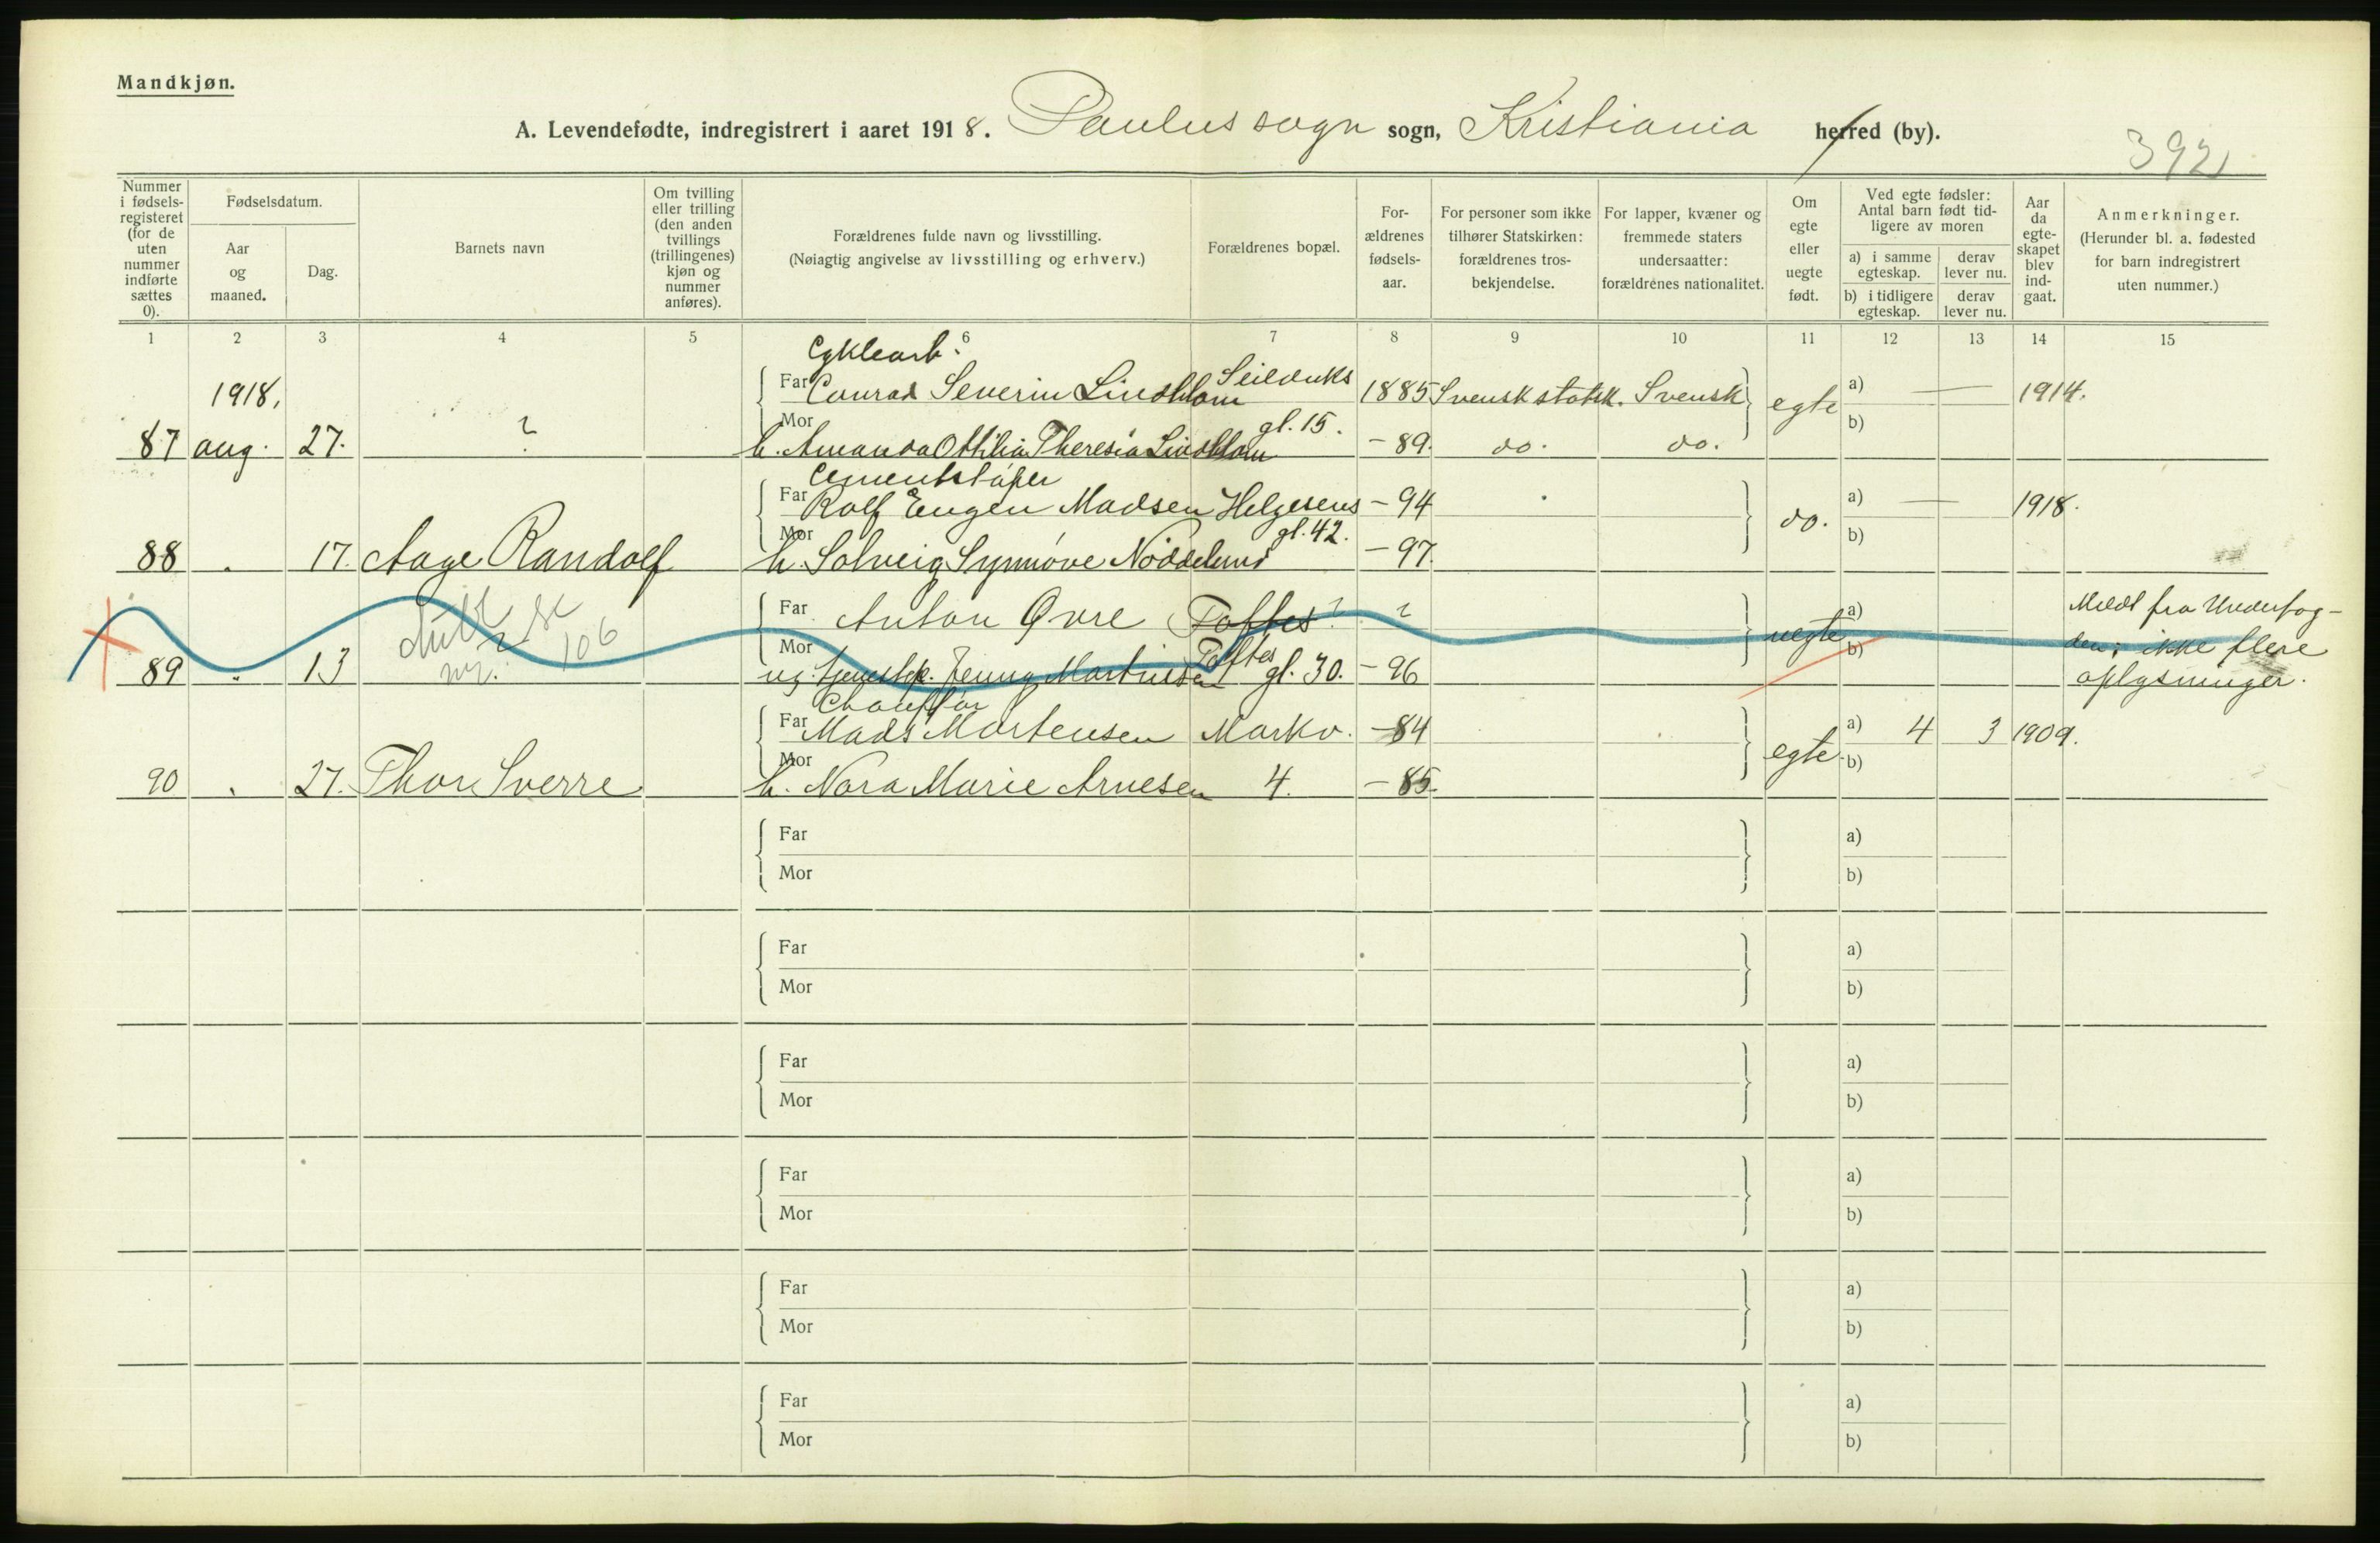 Mandkjøn.
A. Levendefødte, indregistrert i aaret 1918. Paulus sogn sogn, Kristiania herred (by).
392
Nummer i fødsels-registeret (for de uten nummer indførte sættes 0).
Fødselsdatum.
Aar og maaned.
Dag.
Barnets navn
Om tvilling eller trilling (den anden tvillings (trillingenes) kjøn og nummer anføres).
Forældrenes fulde navn og livsstilling.
(Nøiagtig angivelse av livsstilling og erhverv.)
Forældrenes bopæl.
For-ældrenes fødsels-aar.
For personer som ikke tilhører Statskirken: forældrenes tros-bekjendelse.
For lapper, kvæner og fremmede staters undersaatter: forældrenes nationalitet.
Om egte eller uegte født.
Ved egte fødsler: Antal barn født tid-ligere av moren
a) i samme egteskap.
derav lever nu.
b) i tidligere egteskap.
derav lever nu.
Aar da egte-skapet blev ind-gaat.
Anmerkninger.
(Herunder bl. a. fødested for barn indregistrert uten nummer.)
1 2 3 4 5 6 7 8 9 10 11 12 13 14 15
Cyklearb.
1918. Far Conrad Severin Lindblom Seilduks 1885 Svensk statsk. Svensk egte a) — 1914.
87 aug. 27. ? Mor h. Amanda Ottilia Theresia Lindblom gl. 15. – 89. do. do. b)
Cementstøper
Far Rolf Eugen Madsen Helgesens – 94 do. a) — 1918.
88 . 17. Aage Randolf Mor h. Solveig Synnøve Nöddelund gl. 42. – 97. b)
Far Anton Øvre Toftes ? ? uegte a) Meldt fra Underfog-
89 . 13 ? nr. 106 Mor ug. tjenestep. Jenny Martinsen Toftes gl. 30. – 96 b) den; ikke flere
oplysninger.
Chauffør
Far Mads Mortensen Markv. – 84 egte a) 4 3 1909.
90 . 27. Thor Sverre Mor h. Nora Marie Arnesen 4. – 85. b)
Far a)
Mor b)
Far a)
Mor b)
Far a)
Mor b)
Far a)
Mor b)
Far a)
Mor b)
Far a)
Mor b)